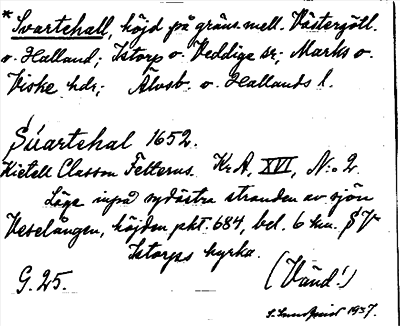 * Svartehall, höjd på gräns. mell. Västergötl.
o. Halland; Istorp o. Veddige sr; Marks o.
Viske hdr; Älvsb. o. Hallands l.
Suartehal 1652.
Kietell Classon Felterus. Kr. A, XVI, N:o 2
Låge invid sydöstra stranden av sjön
Veselången, höjden pkt. 684, bel. 6 km. SV
Istorps kyrka.
G. 25.
(Vänd!)
1937.